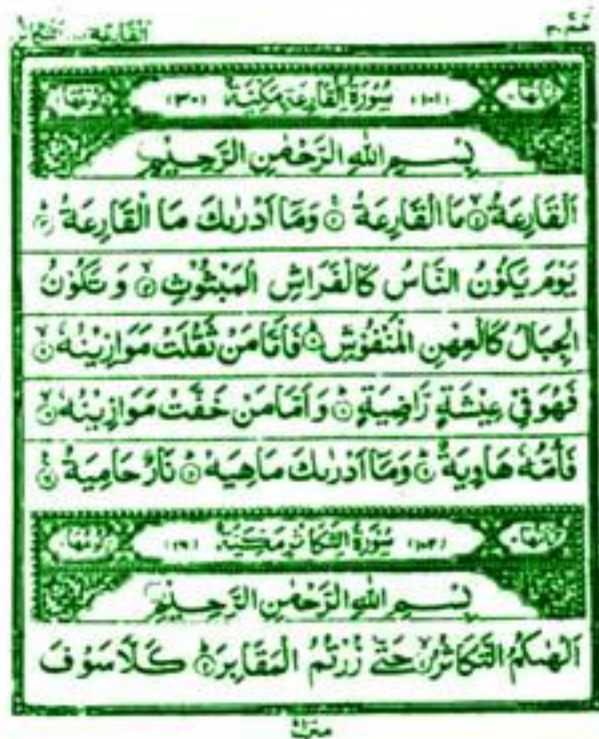 القارعة ... التكاثر
عم ٣٠
(١٠١) سُوْرَةُ الْقَارِعَةِ مَكِّيَّةٌ (٣٠)
بِسْمِ اللهِ الرَّحْمٰنِ الرَّحِيْمِ
اَلْقَارِعَةُ ۙ مَا الْقَارِعَةُ ۚ وَمَاۤ اَدْرٰىكَ مَا الْقَارِعَةُ ؕ
يَوْمَ يَكُوْنُ النَّاسُ كَالْفَرَاشِ الْمَبْثُوْثِ ۙ وَتَكُوْنُ
الْجِبَالُ كَالْعِهْنِ الْمَنْفُوْشِ ؕ فَاَمَّا مَنْ ثَقُلَتْ مَوَازِيْنُهٗ ۙ
فَهُوَ فِيْ عِيْشَةٍ رَّاضِيَةٍ ؕ وَاَمَّا مَنْ خَفَّتْ مَوَازِيْنُهٗ ۙ
فَاُمُّهٗ هَاوِيَةٌ ؕ وَمَاۤ اَدْرٰىكَ مَاهِيَهْ ؕ نَارٌ حَامِيَةٌ ۠
(١٠٢) سُوْرَةُ التَّكَاثُرِ مَكِّيَّةٌ
بِسْمِ اللهِ الرَّحْمٰنِ الرَّحِيْمِ
اَلْهٰىكُمُ التَّكَاثُرُ ۙ حَتّٰى زُرْتُمُ الْمَقَابِرَ ؕ كَلَّا سَوْفَ